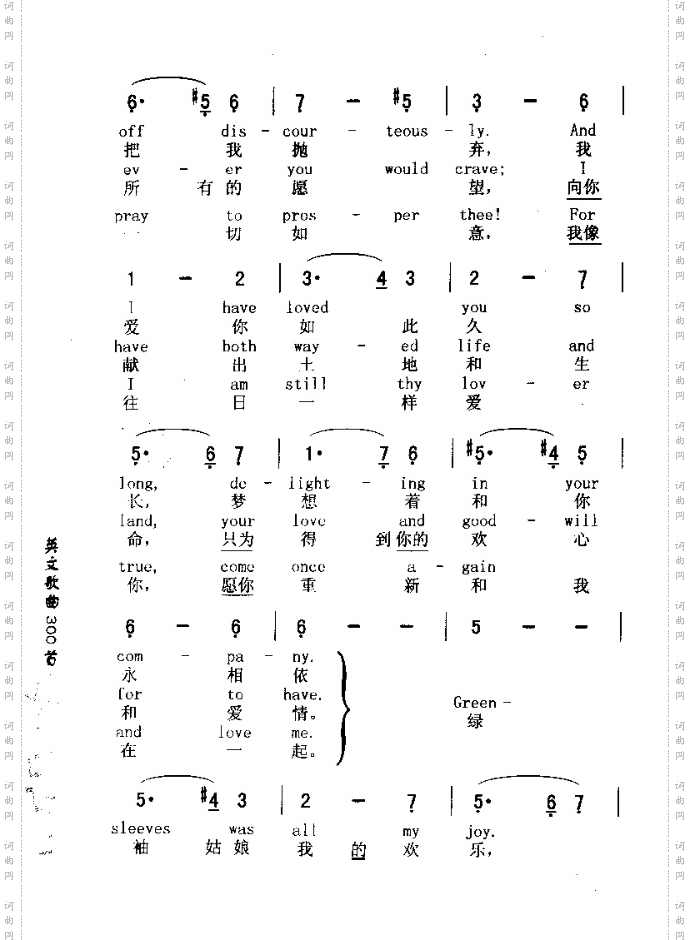 6· #5 6 | 7 － #5 | 3 － 6 |
off dis - cour - teous - ly. And
把 我 抛 弃， 我
ev - er you would crave; I
所 有的 愿 望， 向你
pray to pros - per thee! For
一 切 如 意， 我像
1 － 2 | 3· 4 3 | 2 － 7 |
I have loved you so
爱 你 如 此 久
have both way - ed life and
献 出 土 地 和 生
I am still thy lov - er
往 日 一 样 爱
5· 6 7 | 1· 7 6 | #5· #4 5 |
long, de - light - ing in your
长， 梦 想 着 和 你
land, your love and good - will
命， 只为 得 到你的 欢 心
true, come once a - gain
你， 愿你 重 新 和 我
6 － 6 | 6 － － | 5 － － |
com - pa - ny.
永 相 依
for to have.
和 爱 情。
and love me.
在 一 起。
Green -
绿
5· #4 3 | 2 － 7 | 5· 6 7 |
sleeves was all my joy.
袖 姑娘 我 的 欢 乐，
英文歌曲300首
词曲网